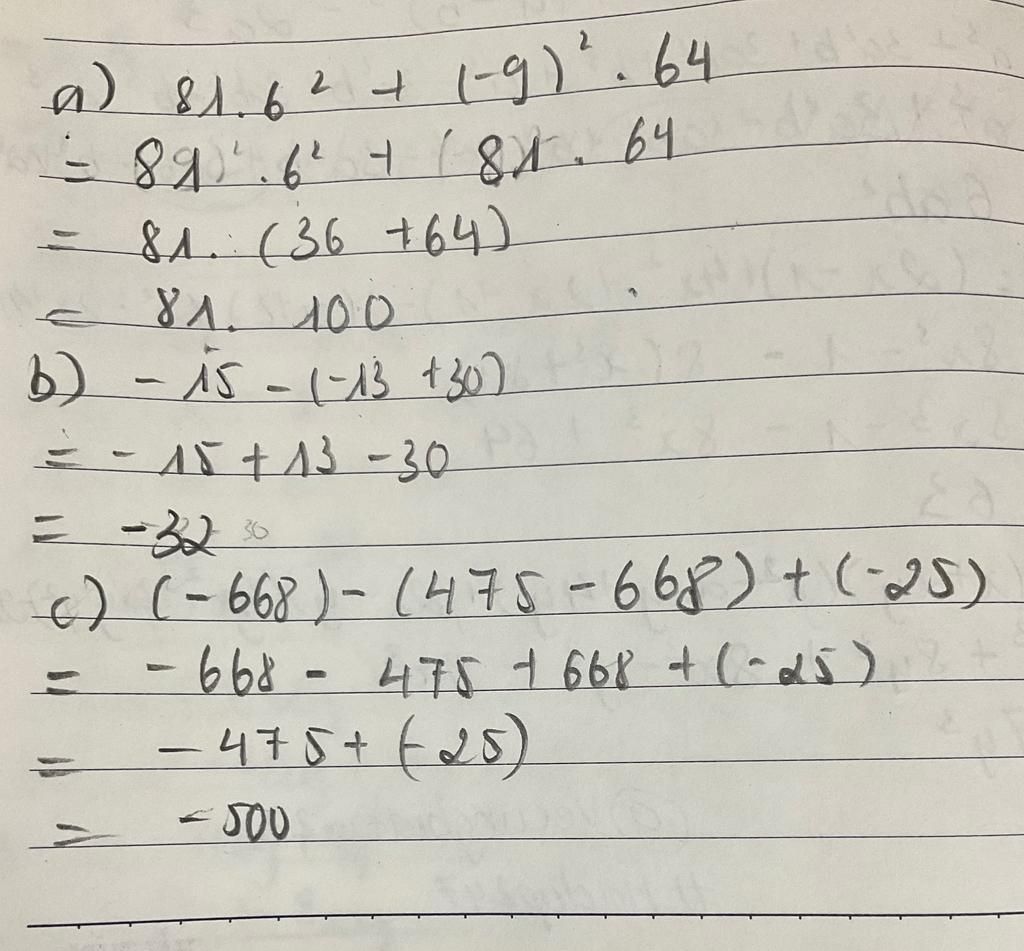 a) 81.6² + (-9)². 64
= 81².6² + (81. 64
= 81. (36 + 64)
= 81. 100
b) - 15 - (-13 + 30)
= - 15 + 13 - 30
= -32 30
c) (-668) - (475 - 668) + (-25)
= - 668 - 475 + 668 + (-25)
= - 475 + (-25)
= - 500